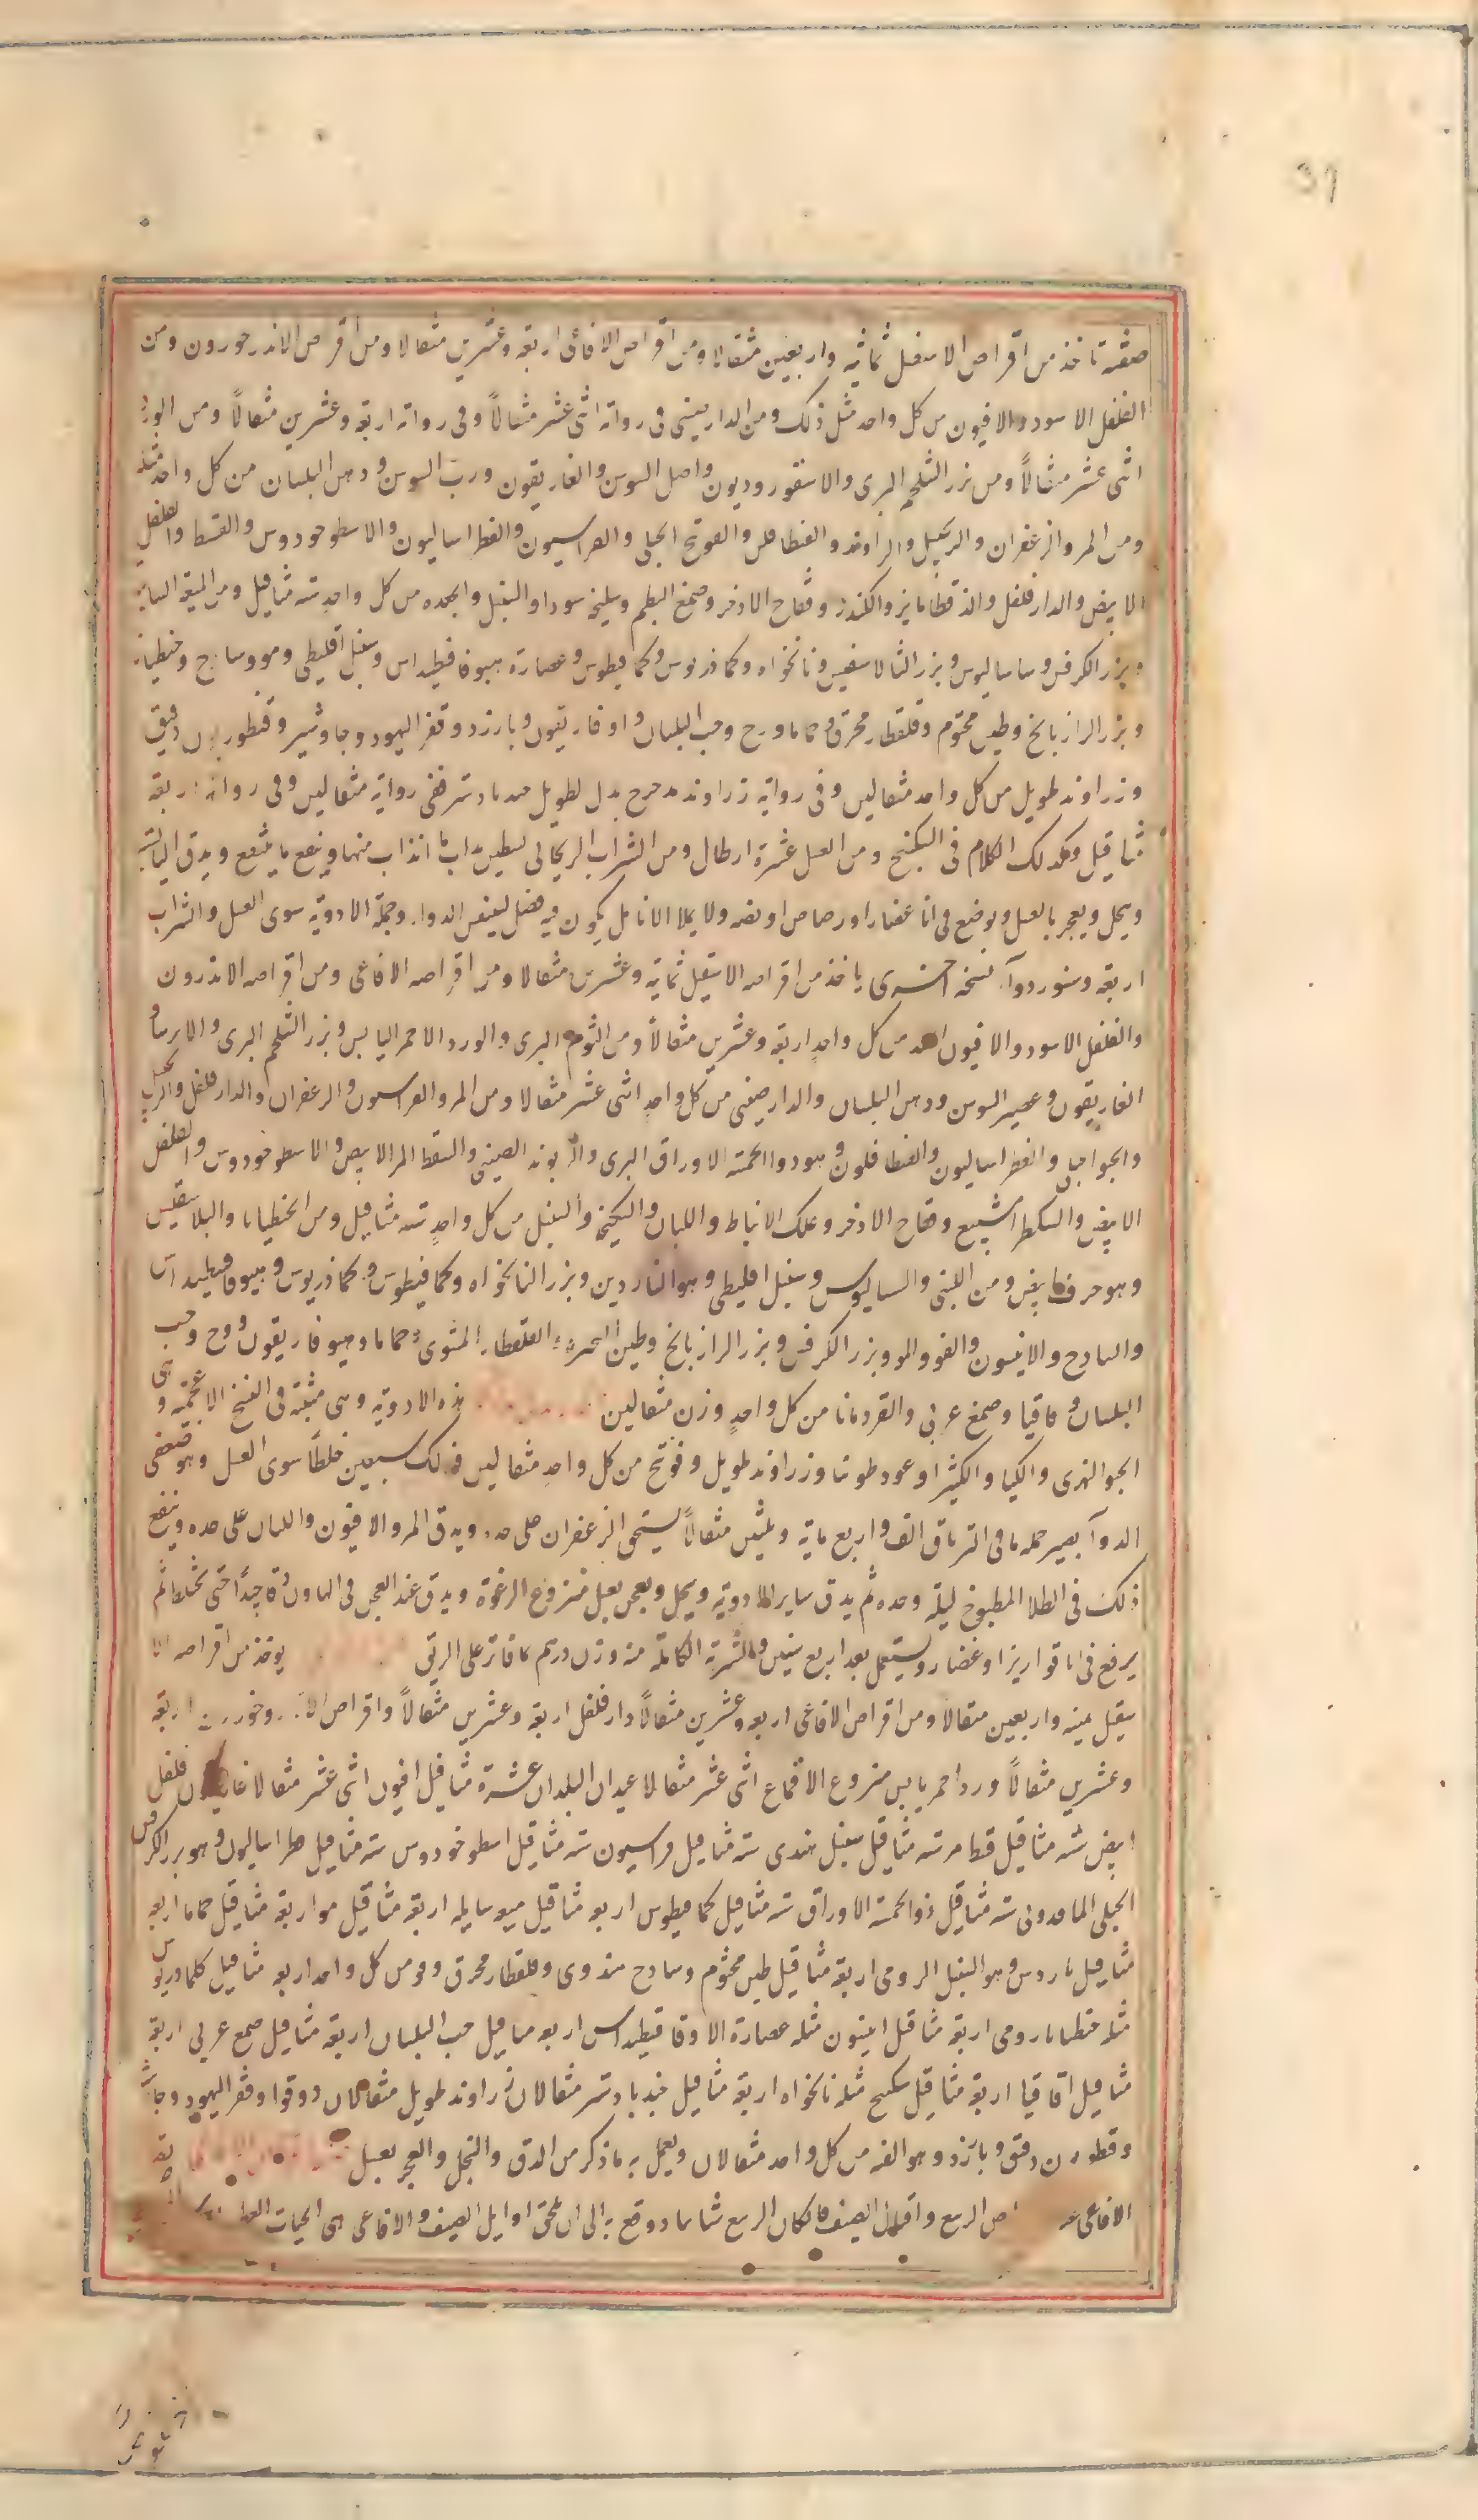 31
صفته تاخذ من اقراص الاسقيل ثمانية واربعين مثقالا ومن اقراص الافاعى اربعة وعشرين مثقالا ومن اقراص الاندرحورون ومن
الفلفل الاسود والافيون من كل واحد مثل ذلك ومن الدارصينى فى رواية اثنى عشر مثقالاً وفى رواية اربعة وعشرين مثقالاً ومن الورد
اثنى عشر مثقالاً ومن بزر الشلجم البرى والاسقورديون واصل السوس والغاريقون ورب السوس ودهن البلسان من كل واحد مثله
ومن المر والزعفران والزنجبيل والراوند والفنطافلن والفوتنج الجبلى والفراسيون والفطراساليون والاسطوخودوس والقسط والفلفل
الابيض والدارفلفل والدقطاماير والكندر وفقاح الاذخر وصمغ البطم وسليخه سودا والسنبل والجعده من كل واحد سته مثاقيل ومن الميعه السايله
وبزر الكرفس وساساليوس وبزر الثالاسفيس ونانخواه وكمادريوس وكمافيطوس وعصارة هيبوفافيطيداس وسنبل اقليطى ومو وساذج وجنطيانا
وبزر الرازيانج وطين مختوم وقلقطار محرق وحماما ووج وحب البلسان واوفاريقون وبارزد وقفر اليهود وجاوشير وقنطوريون دقيق
وزراوند طويل من كل واحد مثقالين وفى رواية زراوند مدحرج بدل الطويل جندبادستر ففى رواية مثقالين وفى رواية اربعة
مثاقيل وكذلك الكلام فى السكبينج ومن العسل عشرة ارطال ومن الشراب الريحانى قسطين يذاب ما انذاب منها وينقع ما ينقع ويدق اليابسة
وينخل ويعجن بالعسل ويوضع فى انا غضار او رصاص او فضه ولا يملا الانا بل يكون فيه فضل لتنفس الدوا. وجملة الادوية سوى العسل والشراب
اربعة وستون دوآ. نسخه اخرى ياخذ من اقراصه الاسقيل ثمانية وعشرين مثقالا ومن اقراصه الافاعى ومن اقراصه الاندرون
والفلفل الاسود والافيون من كل واحد اربعة وعشرين مثقالاً ومن الثوم البرى والورد الاحمر اليابس وبزر الشلجم البرى والايرسا و
الغاريقون وعصير السوس ودهن البلسان والدارصينى من كل واحد اثنى عشر مثقالا ومن المر والفراسيون والزعفران والدارفلفل والزنجبيل
والفطراساليون والفنطافلون وهو ذو الخمسة الاوراق البرى والريوند الصينى والقسط المر الابيض والاسطوخودوس والفلفل
الابيض والمشكطرامشيع وفقاح الاذخر وعلك الانباط واللبان والسليخة والسنبل من كل واحد سته مثاقيل ومن الجنطيانا والبلاسقيس
وهو حرف ابيض ومن اللبنى والسساليوس وسنبل اقليطى وهو الناردين وبزر النانخواه وكمافيطوس وكمادريوس وهيبوقاقيطيداس
والساذج والانيسون والفو والمو وبزر الكرفس وبزر الرازيانج وطين البحيرة والقلقطار المشوى وحماما وهيوفاريقون ووج وحب
البلسان واقاقيا وصمغ عربى والقردمانا من كل واحد وزن مثقالين هذه الادوية وهى مثبتة فى النسخ الاعجمية وهى
والكثيرا وعود وزراوند طويل وفوتنج من كل واحد مثقالين فذلك سبعين خلطاً سوى العسل وهو ضعفى
الدوآ يصير جمله ما فى الترياق الف واربع مايه وثلثين مثقالاً يسحق الزعفران على حده ويدق المر والافيون واللبان على حده وينقع
ذلك فى الطلا المطبوخ ليلة وحده ثم يدق ساير الادوية وينخل ويعجن بعسل منزوع الرغوة ويدق عند العجن فى الهاون دقا جيداً حتى يختلط ثم
يرفع فى انا قوارير او غضار ويستعمل بعد اربع سنين والشربة الكاملة منه وزن درهم بما فاتر على الريق يوخذ من اقراصه الا
سقيل ثمنيه واربعين مثقالا ومن اقراص الافاعى اربعه وعشرين مثقالاً دارفلفل اربعة وعشرين مثقالاً واقراص اربعة
وعشرين مثقالاً ورد احمر يابس منزوع الاقماع اثنى عشر مثقالا عيدان البلسان عشرة مثاقيل افيون اثنى عشر مثقالا فلفل
ابيض سته مثاقيل قسط مر سته مثاقيل سنبل هندى سته مثاقيل فراسيون سته مثاقيل اسطوخودوس سته مثاقيل فطراساليون وهو بزر الكرفس
الجبلى الماقدونى سته مثاقيل ذو الخمسة الاوراق سته مثاقيل كمافيطوس اربعه مثاقيل ميعه سايله اربعة مثاقيل مو اربعة مثاقيل حماما اربعه
مثاقيل ناردين وهو السنبل الرومى اربعة مثاقيل طين مختوم وساذج هندى وقلقطار محرق وفو من كل واحد اربعه مثاقيل كمادريوس
مثله جنطيانا رومى اربعة مثاقيل انيسون مثله عصارة الاوقاقيطيداس اربعه مثاقيل حب البلسان اربعة مثاقيل صمغ عربى اربعة
مثاقيل اقاقيا اربعة مثاقيل سكبينج مثله نانخواه اربعة مثاقيل جندبادستر مثقالان زراوند طويل مثقالان دوقوا وقفر اليهود وجاوشير
وقنطوريون دقيق وبارزد وهو القنه من كل واحد مثقالان ويعمل به ما ذكر من الدق والنخل والعجن بعسل
الافاعى الربيع واقبال الصيف فان كان الربيع شاتيا دوفع به الى ان يلحق اوايل الصيف والافاعى هى الحيات